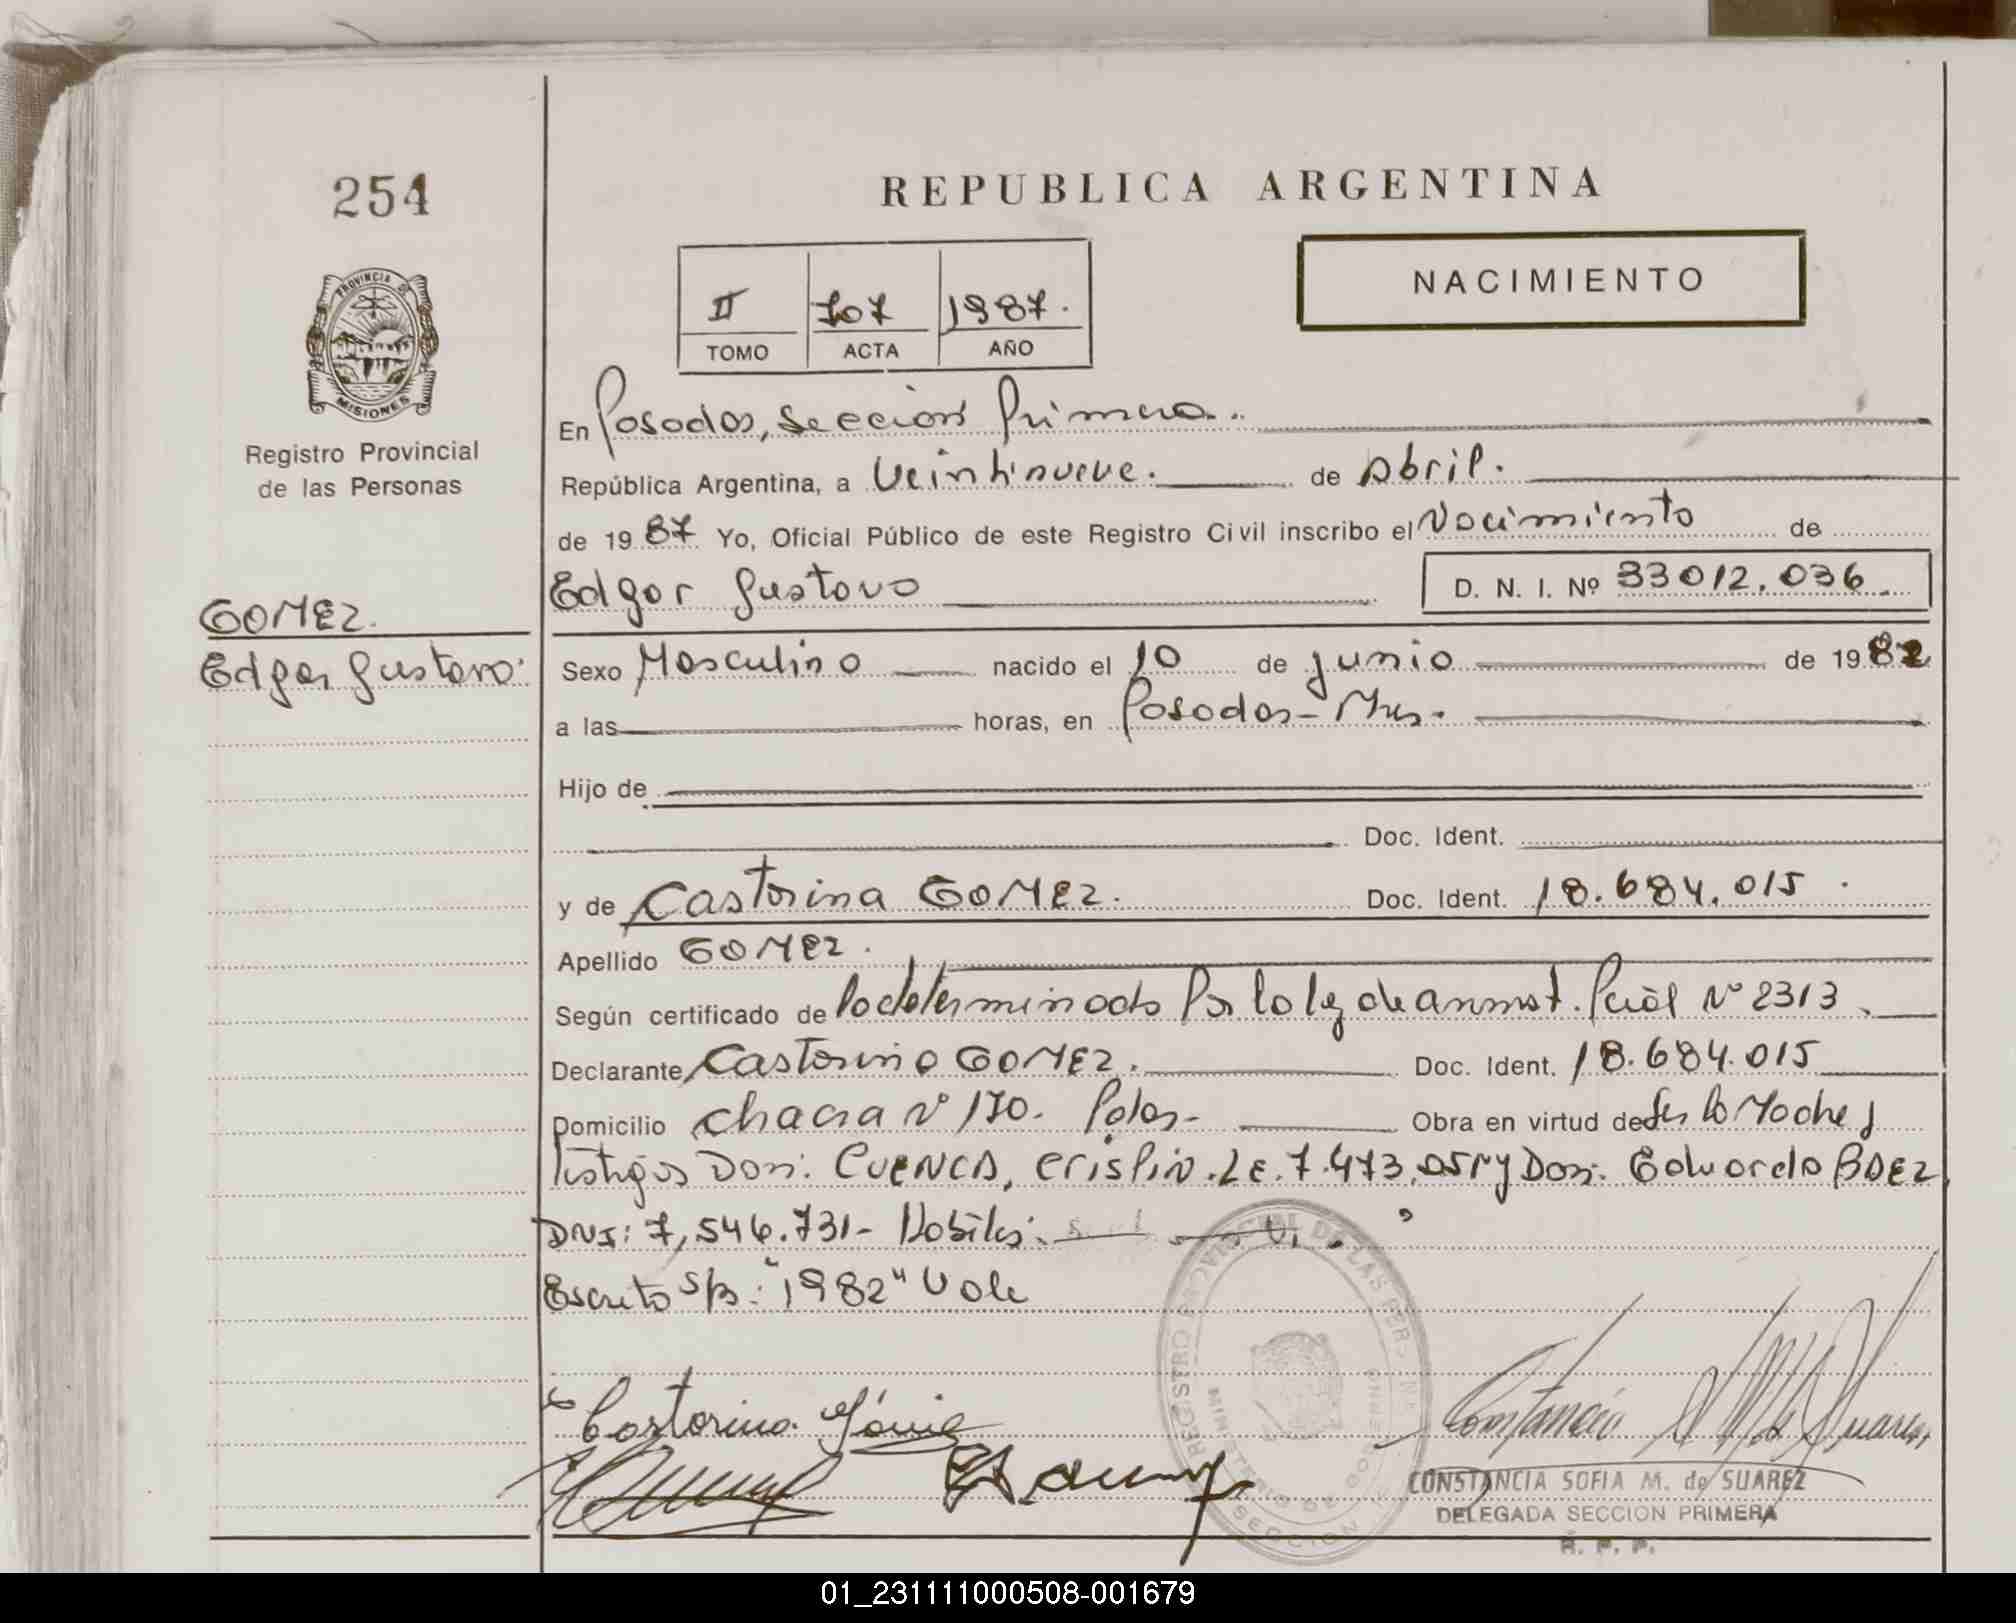 254
REPUBLICA ARGENTINA
NACIMIENTO
II 707 1987.
TOMO ACTA AÑO
PROVINCIA DE
MISIONES
Registro Provincial
de las Personas
En Posadas, Sección Primera.
República Argentina, a Veintinueve. de Abril.
de 1987 Yo, Oficial Público de este Registro Civil inscribo el Nacimiento de
Edgar Gustavo D. N. I. Nº 33012.036
GOMEZ.
Edgar Gustavo.
Sexo Masculino nacido el 10 de junio de 1982
a las horas, en Posadas - Mnes.
Hijo de
Doc. Ident.
y de Castorina GOMEZ. Doc. Ident. 18.684.015.
Apellido GOMEZ.
Según certificado de lo determinado Por la ley de amnist. Pcial Nº 2313.
Declarante Castorina GOMEZ. Doc. Ident. 18.684.015
Domicilio Chacra Nº 170. Pdas. Obra en virtud de Ser la Madre y
testigos Don: CUENCA, Crispin. LE. 7.473. y Don: Eduardo BAEZ
DNI: 7,546.731- Hábiles.
Escrito s/b: "1982" Vale
Castorina Gómez
Constancia M. de Suarez
CONSTANCIA SOFIA M. de SUAREZ
DELEGADA SECCION PRIMERA
R. P. P.
REGISTRO PROVINCIAL DE LAS PER
MINISTERIO DE GOBIERNO
SECCION
01_231111000508-001679